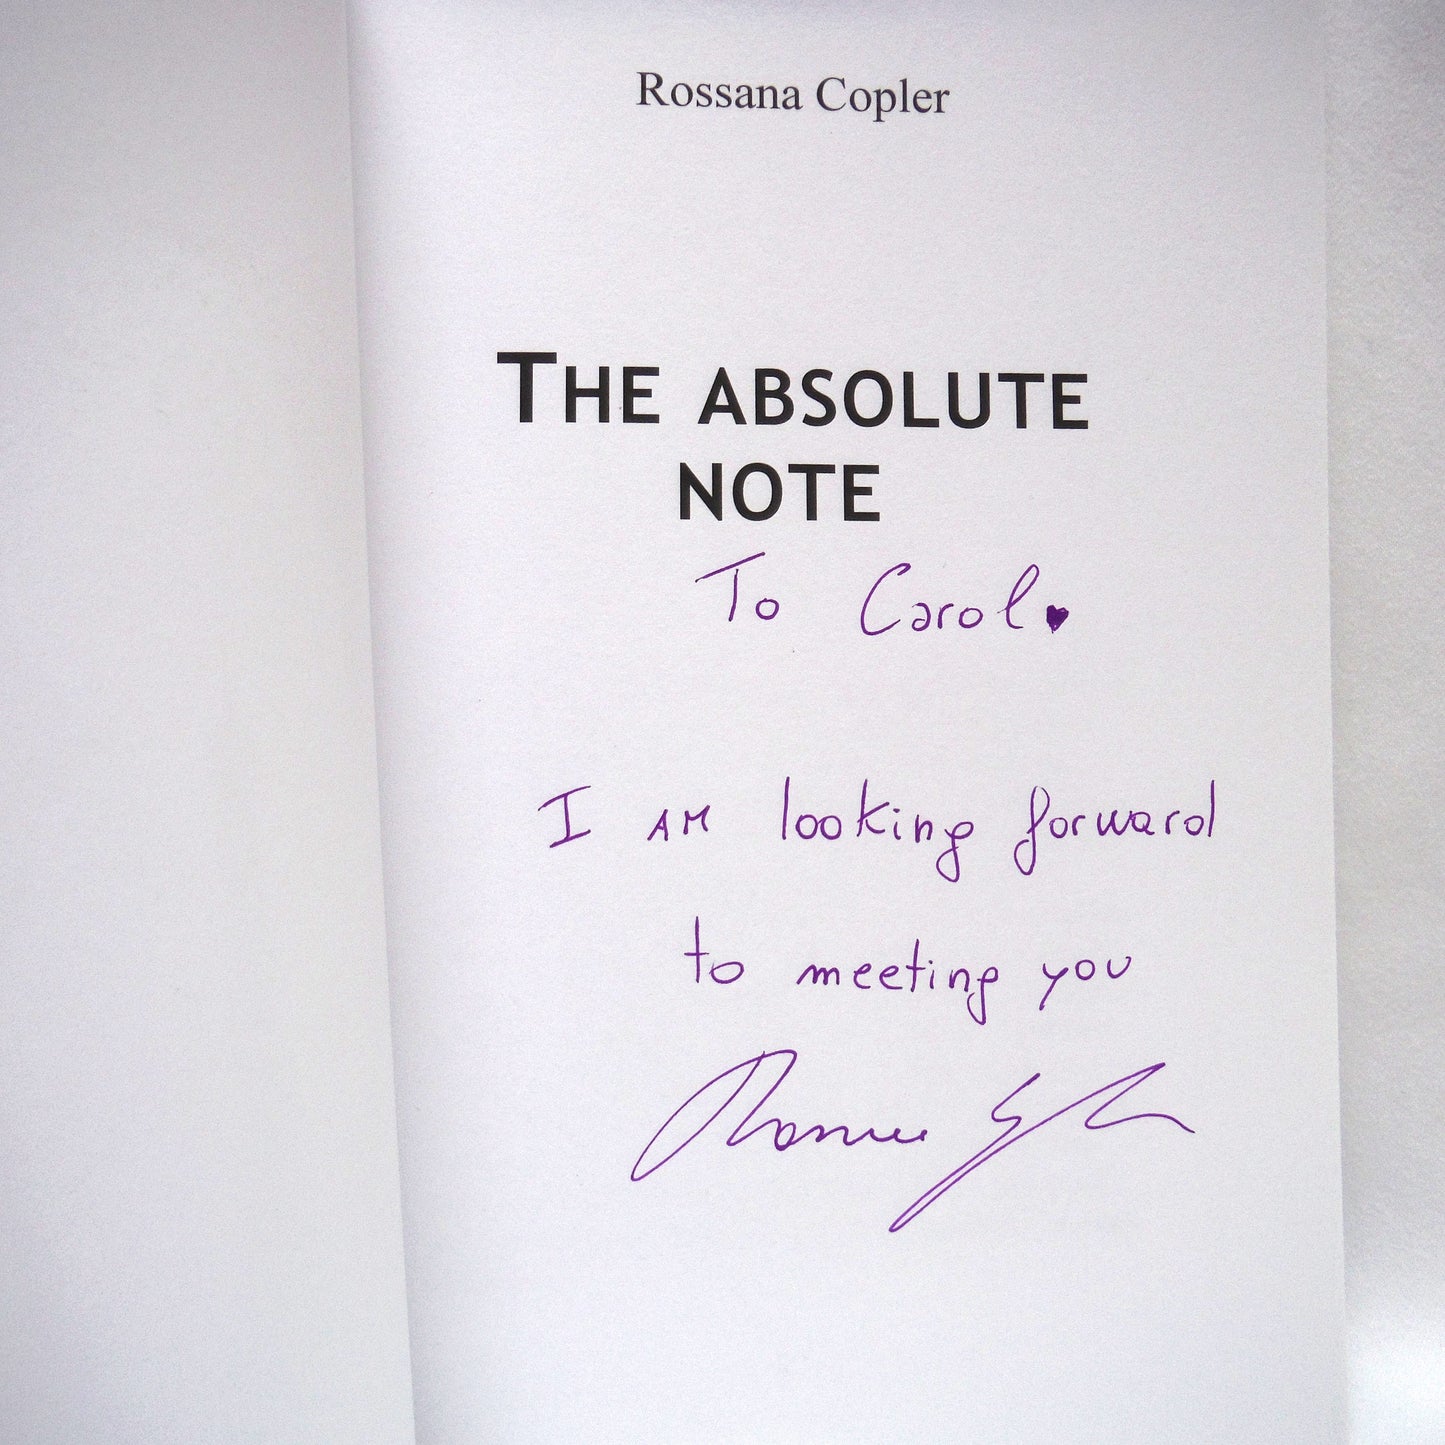 Rossana Copler
THE ABSOLUTE
NOTE
To Carol♥
I AM looking forward
to meeting you